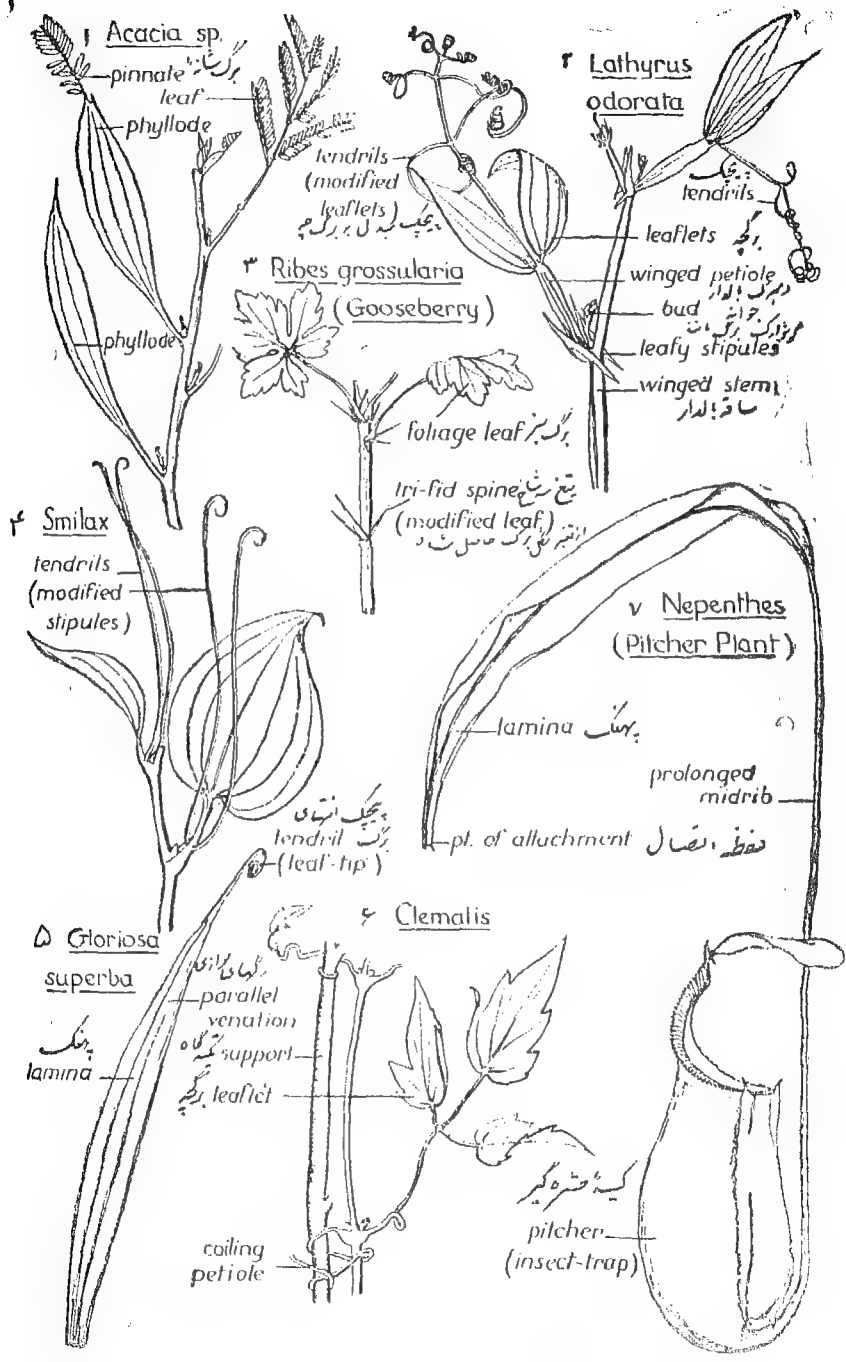 ۱ Acacia sp.
pinnate برگ شانه‌ای
leaf
phyllode
phyllode
۲ Lathyrus
odorata
tendrils
(modified
leaflets)
پیچک
tendrils
leaflets برگچه
winged petiole
دمبرگ بالدار
bud جوانه
leafy stipules
winged stem
ساقه بالدار
۳ Ribes grossularia
(Gooseberry)
foliage leaf برگ سبز
tri-fid spine تیغ سه شاخ
(modified leaf)
۴ Smilax
tendrils
(modified
stipules)
۷ Nepenthes
(Pitcher Plant)
lamina پهنک
prolonged
midrib
pt. of attachment نقطه اتصال
کیسهٔ حشره گیر
pitcher
(insect-trap)
پیچک انتهای
tendril برگ
(leaf-tip)
۵ Gloriosa
superba
رگهای موازی
parallel
venation
پهنک
lamina
۶ Clematis
تکیه گاه support
برگچه leaflet
coiling
petiole